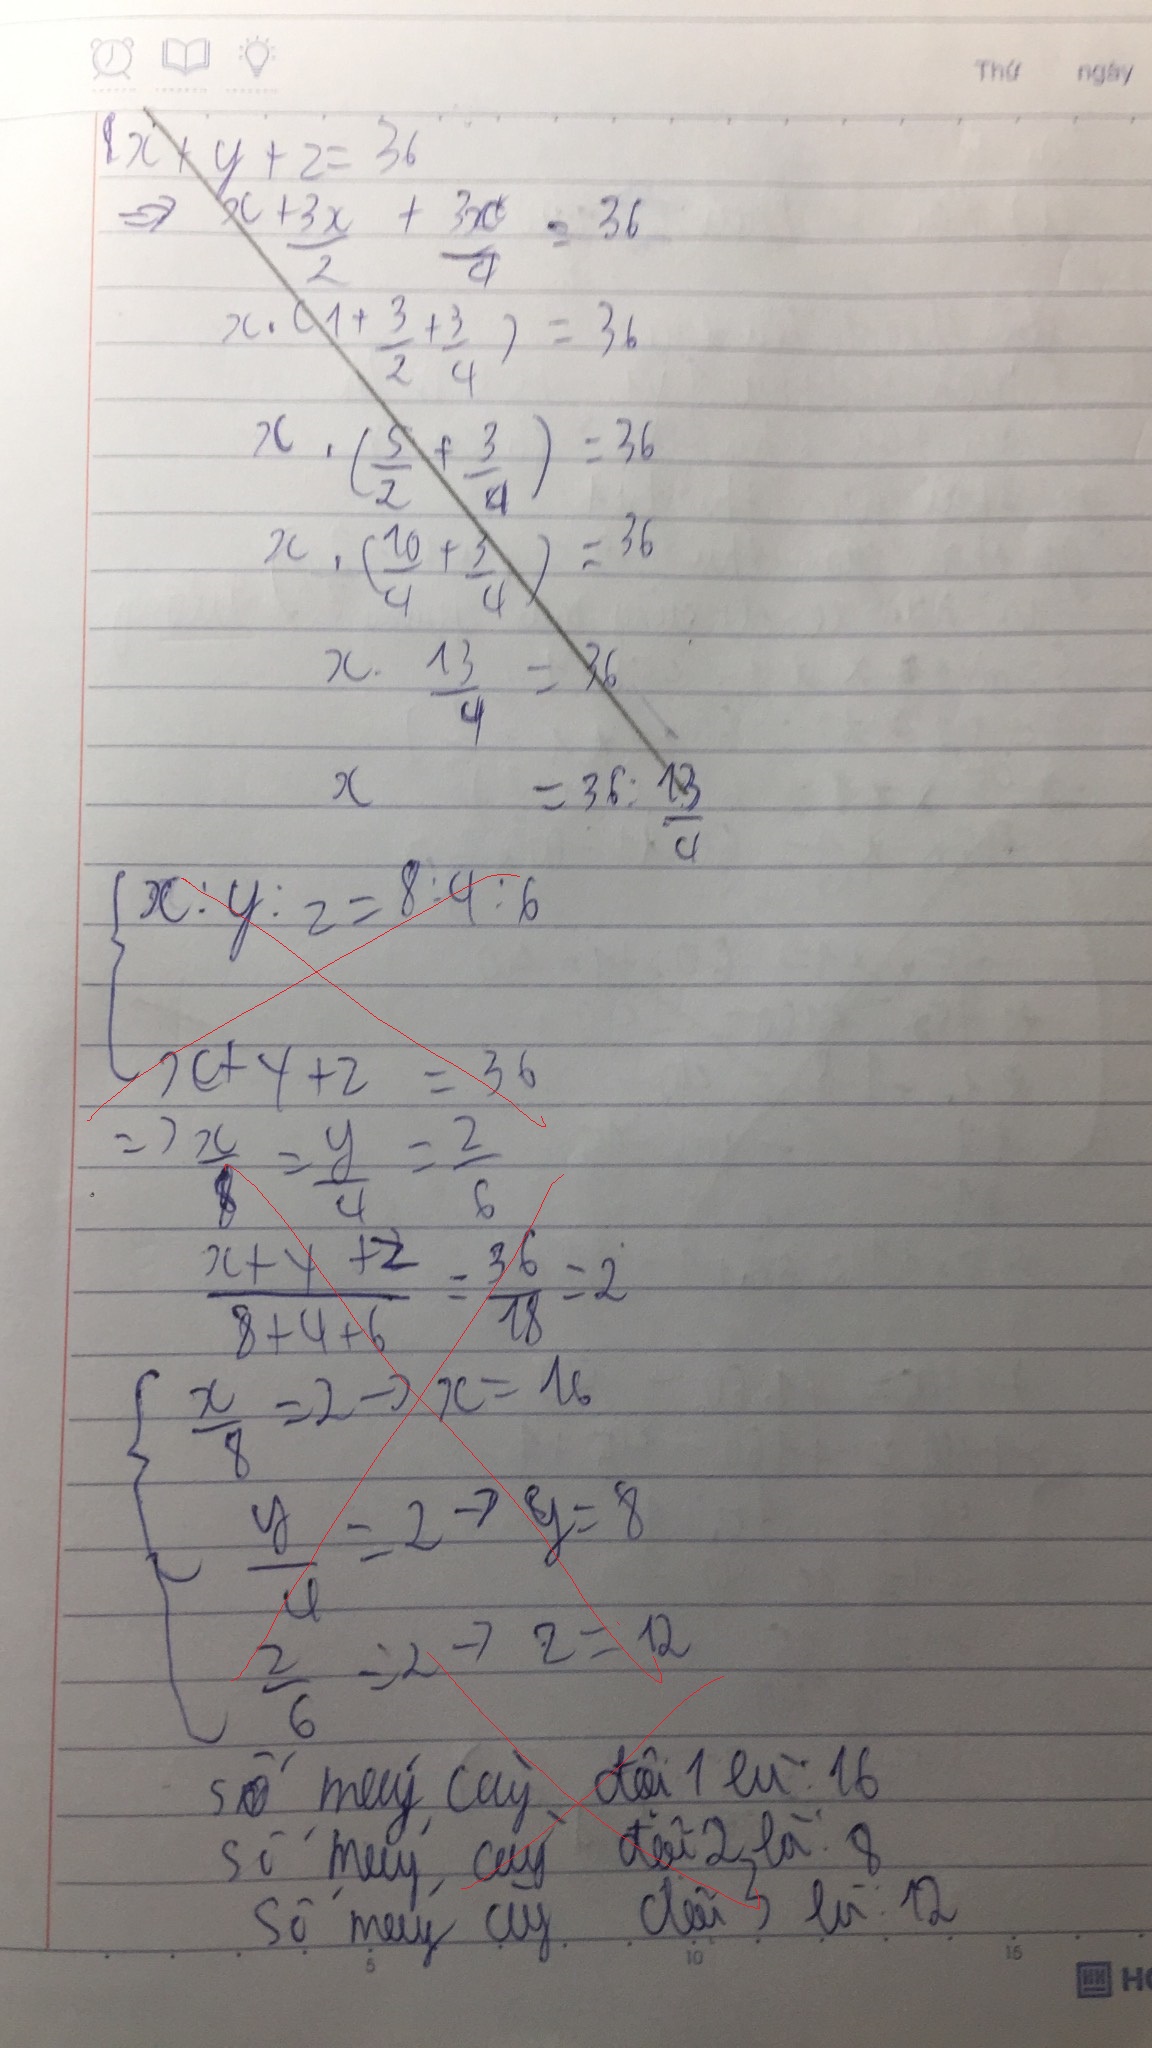 Thứ ngày
x + y + z = 36
=> x + 3x/2 + 3x/4 = 36
x . (1 + 3/2 + 3/4) = 36
x . (5/2 + 3/4) = 36
x . (10/4 + 3/4) = 36
x . 13/4 = 36
x = 36 : 13/4
x : y : z = 8 : 4 : 6
x + y + z = 36
=> x/8 = y/4 = z/6
(x + y + z)/(8 + 4 + 6) = 36/18 = 2
x/8 = 2 -> x = 16
y/4 = 2 -> y = 8
z/6 = 2 -> z = 12
số máy cày đội 1 là: 16
số máy cày đội 2 là: 8
số máy cày đội 3 là: 12
5 10 15